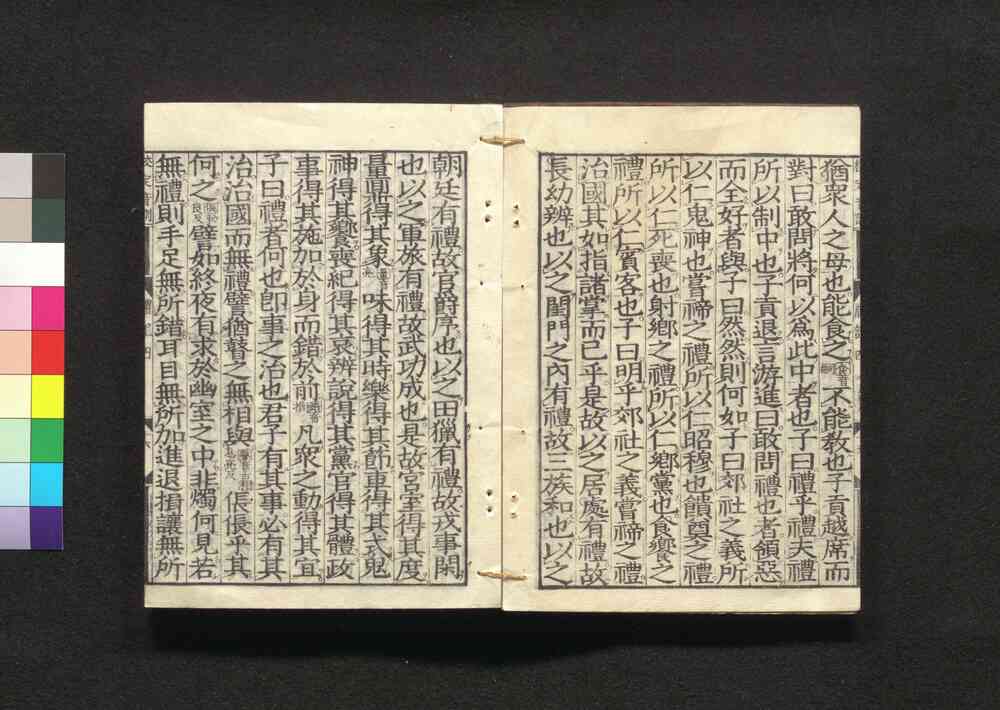 猶衆人之母也能食之不能敎也子貢越席而
對曰敢問將何以爲此中者也子曰禮乎禮夫禮
所以制中也子貢退言游進曰敢問禮也者領惡
而全好者與子曰然然則何如子曰郊社之義所
以仁鬼神也嘗禘之禮所以仁昭穆也饋奠之禮
所以仁死喪也射鄉之禮所以仁鄉黨也食饗之
禮所以仁賓客也子曰明乎郊社之義嘗禘之禮
治國其如指諸掌而已乎是故以之居處有禮故
長幼辨也以之閨門之內有禮故三族和也以之
朝廷有禮故官爵序也以之田獵有禮故戎事閑
也以之軍旅有禮故武功成也是故宮室得其度
量鼎得其象味得其時樂得其節車得其式鬼
神得其饗喪紀得其哀辨說得其黨官得其體政
事得其施加於身而錯於前凡衆之動得其宜
子曰禮者何也卽事之治也君子有其事必有其
治治國而無禮譬猶瞽之無相與倀倀乎其
何之譬如終夜有求於幽室之中非燭何見若
無禮則手足無所錯耳目無所加進退揖讓無所